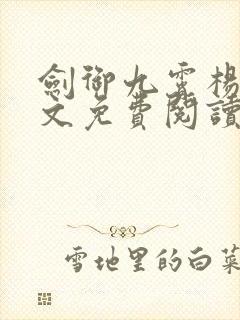 劍御九霄楊
文免費閱讀
雪地里的白菜